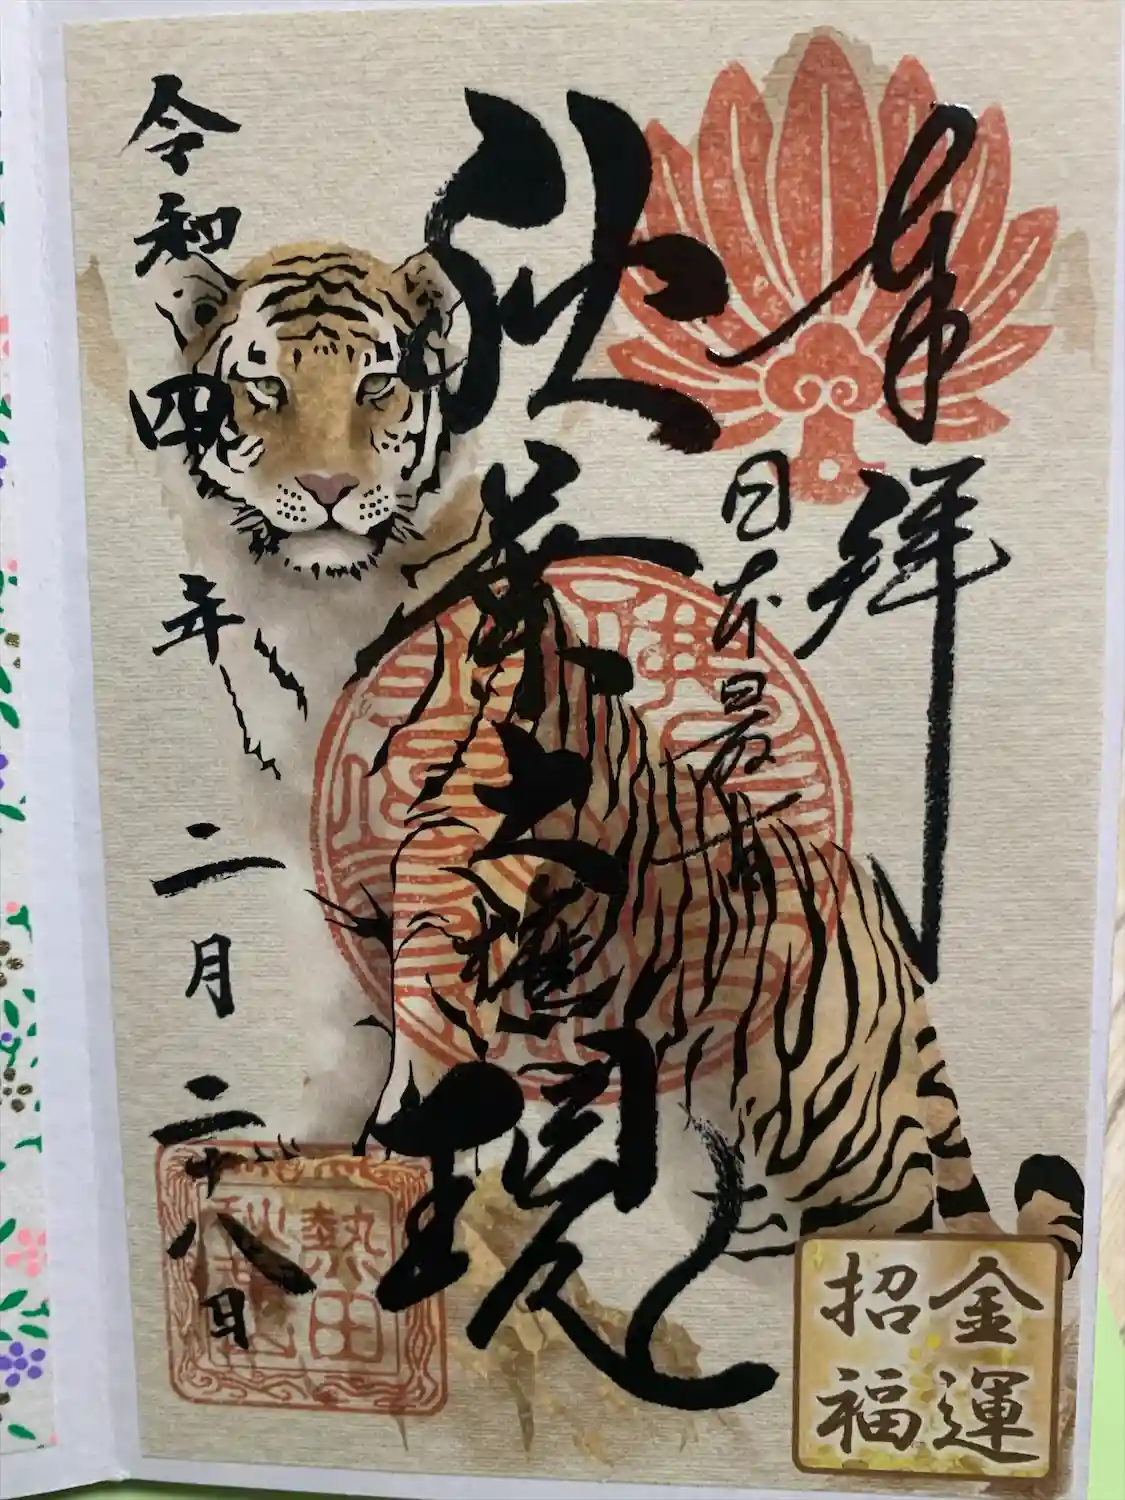 奉拝
日本最古
秋葉大権現
令和四年二月二十八日
熱田
金運
招福